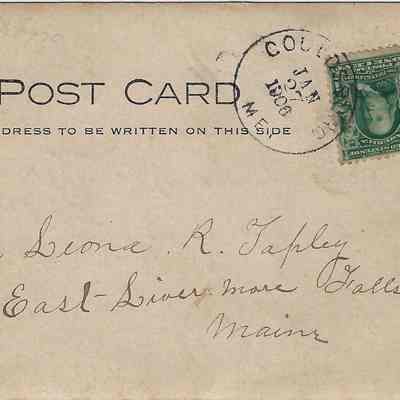 POST CARD
DRESS TO BE WRITTEN ON THIS SIDE
JAN
27
1906
ME.
Leona R. Tapley
East Livermore Falls
Maine